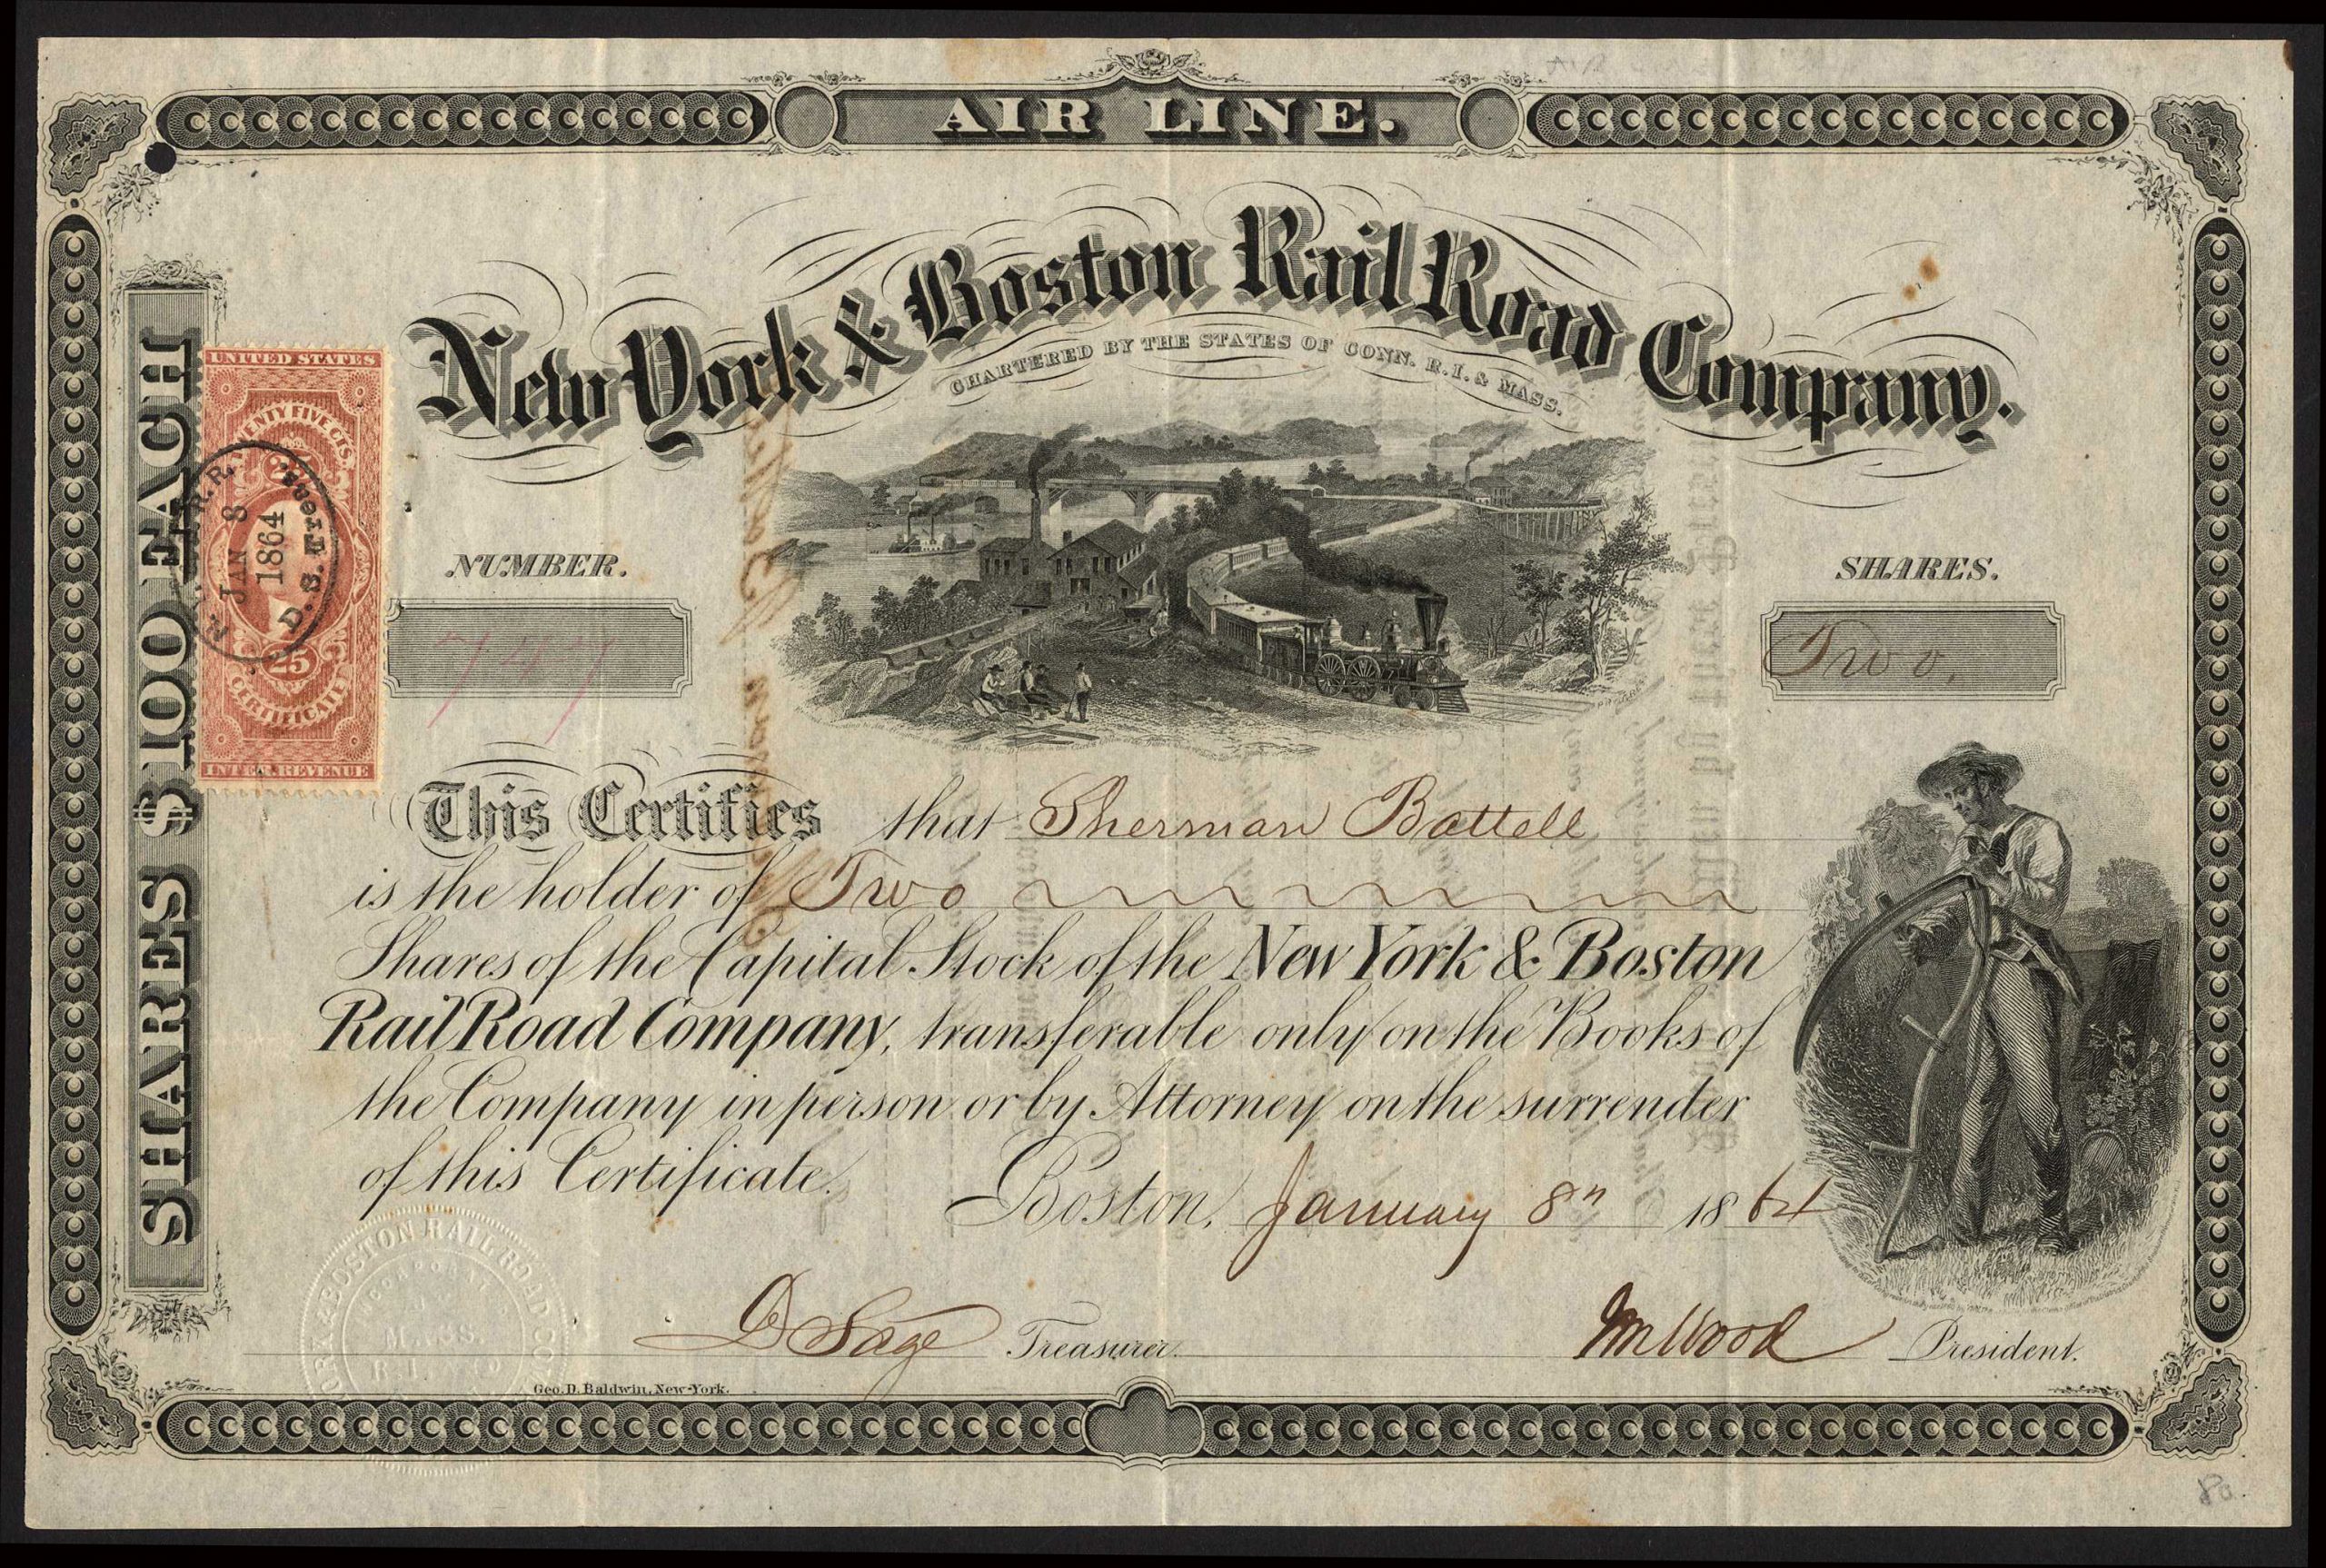 AIR LINE.
New York & Boston Rail Road Company.
CHARTERED BY THE STATES OF CONN. R.I. & MASS.
SHARES $100 EACH
UNITED STATES
TWENTY FIVE CTS.
25
JAN 8
1864
D. S. Treas.
25
CERTIFICATE
INTER. REVENUE
NUMBER.
747
SHARES.
Two.
This Certifies that Sherman Battell
is the holder of Two
Shares of the Capital Stock of the New York & Boston
Rail Road Company, transferable only on the Books of
the Company in person or by Attorney on the surrender
of this Certificate.
Boston, January 8th 1864
D Sage Treasurer.
Wm Wood President.
YORK & BOSTON RAIL ROAD CO.
MASS.
R.I.
Geo. D. Baldwin, New-York.